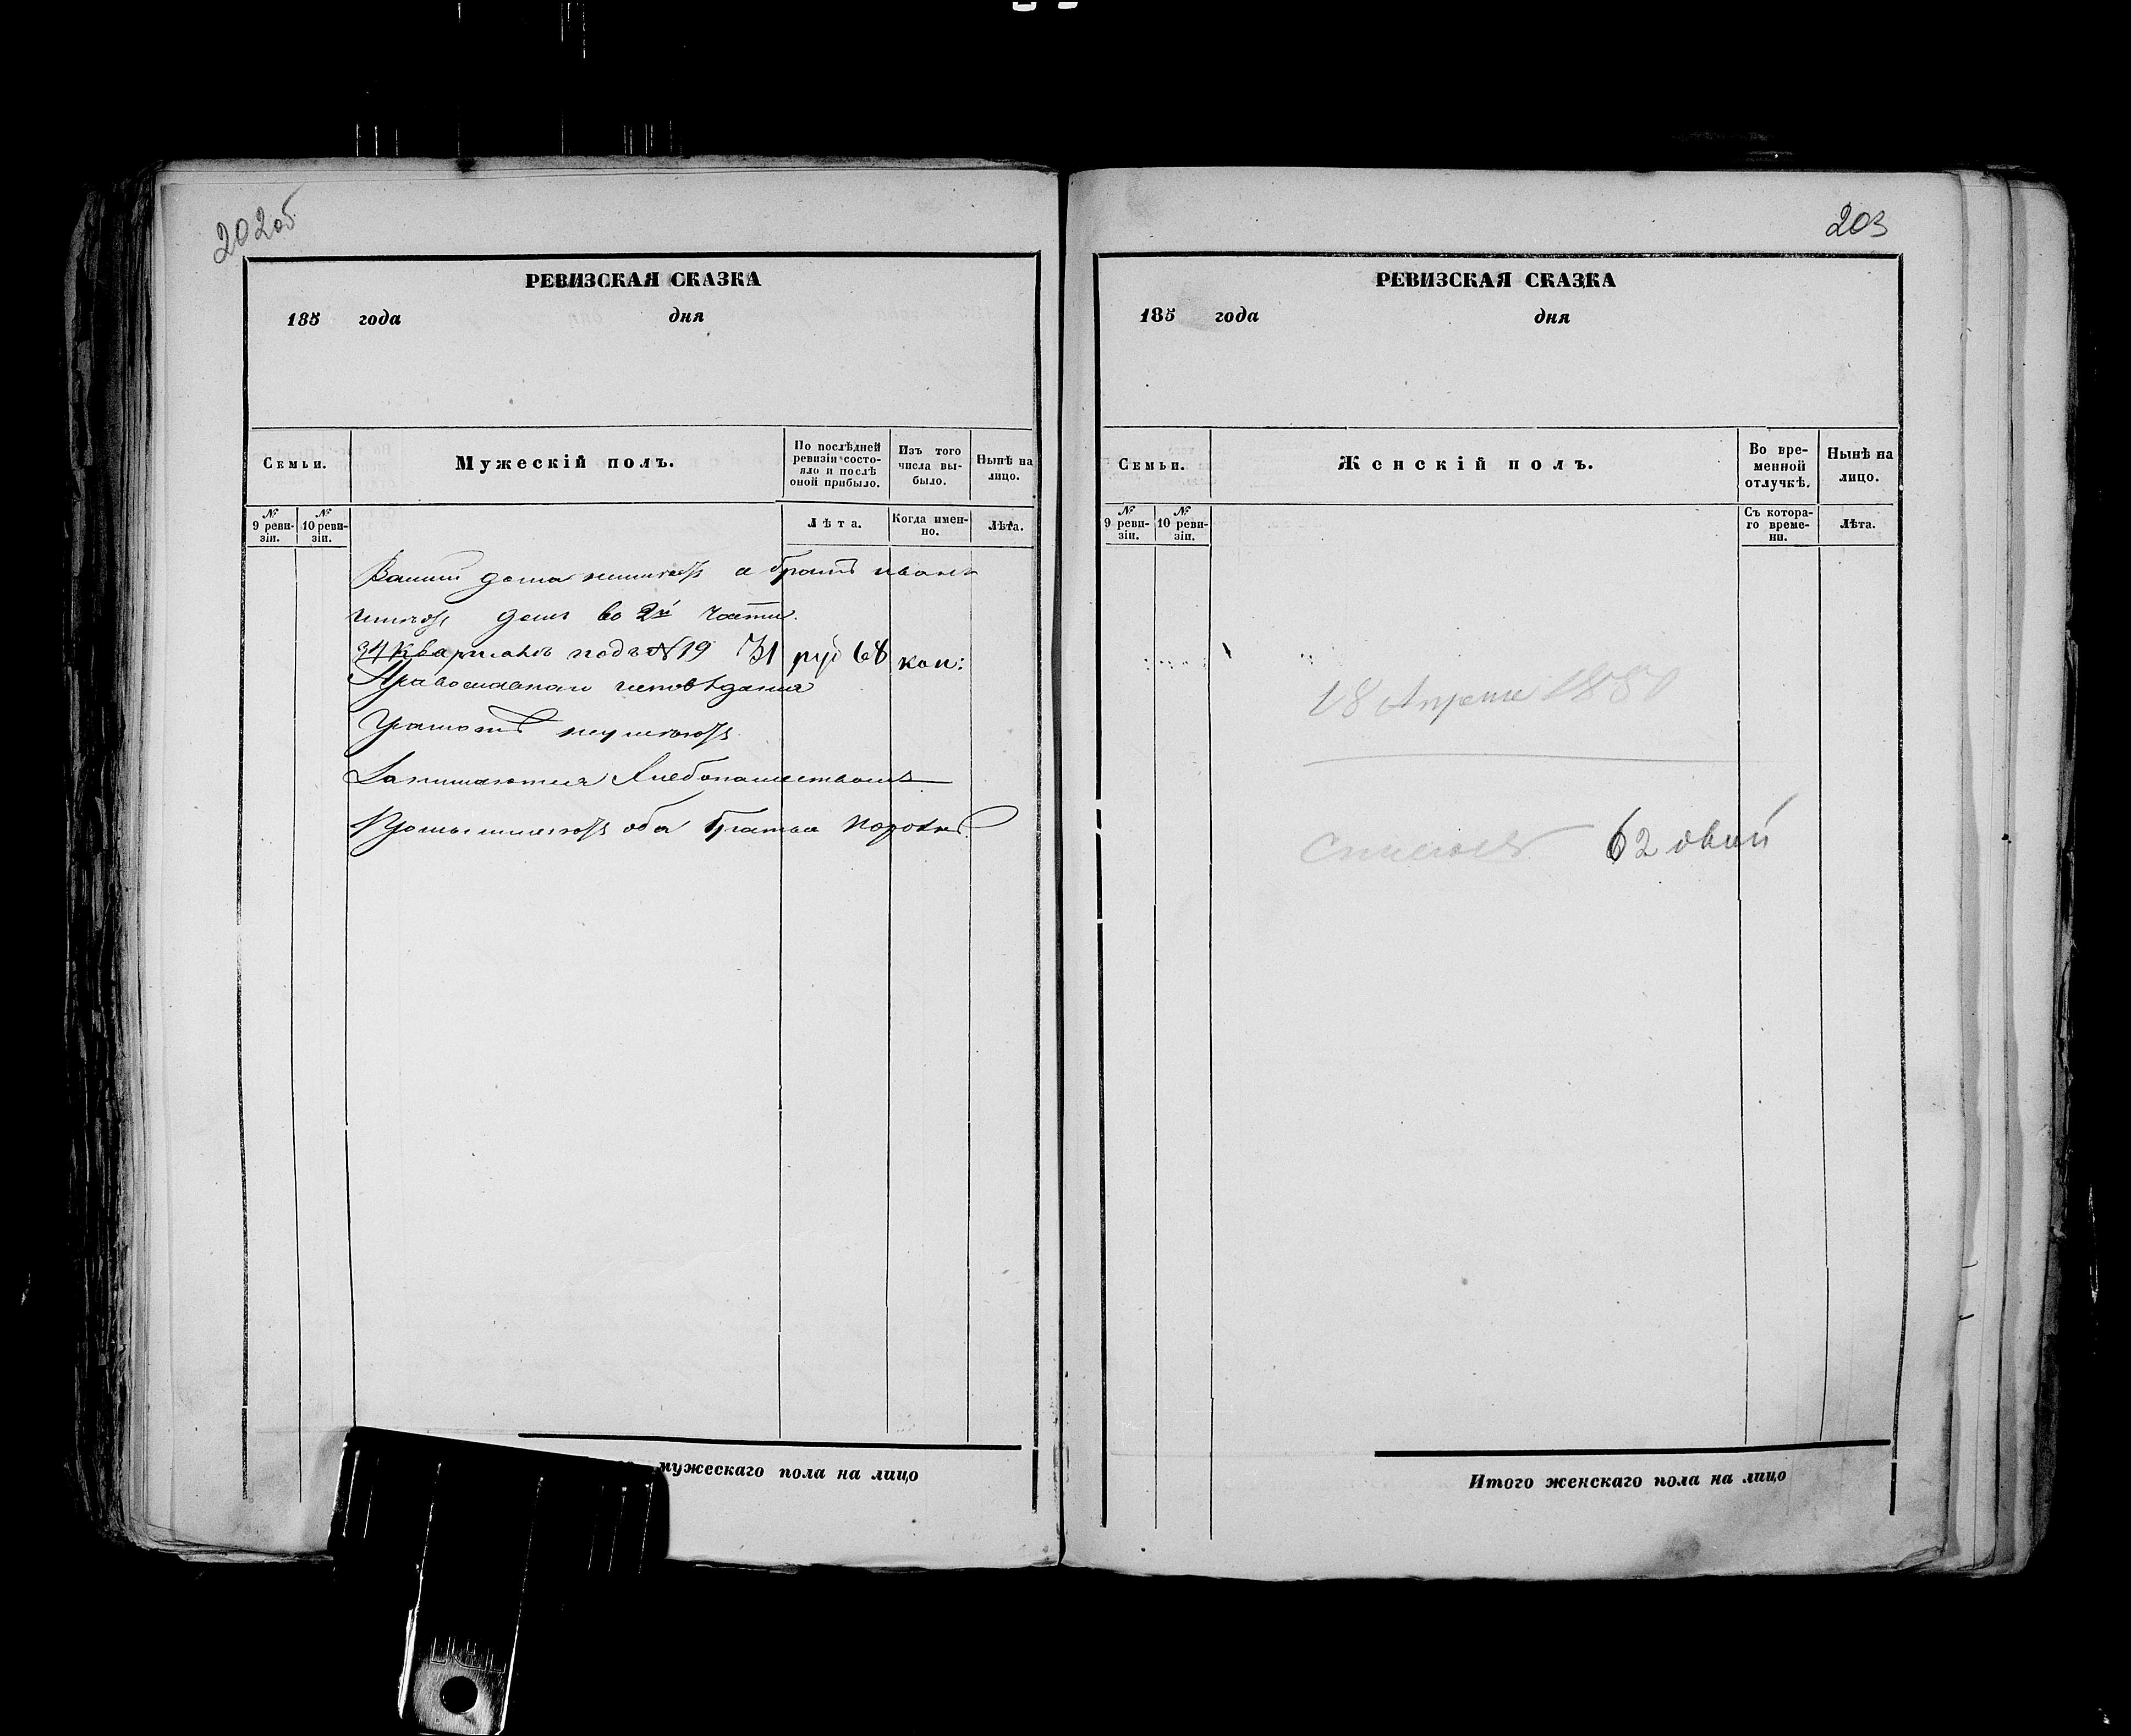 202об
РЕВИЗСКАЯ СКАЗКА
185 года дня
Семьи.
Мужескій полъ.
По послѣдней ревизіи состо-
яло и послѣ
оной прибыло.
Изъ того
числа вы-
было.
Нынѣ на
лицо.
№
9 реви-
зіи.
№
10 реви-
зіи.
Лѣта.
Когда имен-
но.
Лѣта.
дома а братъ иванъ
домъ во 2й части
34 квартала подъ № 19 руб 68 коп:
Православнаго исповѣданія
Грамотѣ
Занимаются Хлебопашествомъ
оба братья
мужескаго пола на лицо
203
РЕВИЗСКАЯ СКАЗКА
185 года дня
Семьи.
Женскій полъ.
Во вре-
менной
отлучкѣ.
Нынѣ на
лицо.
№
9 реви-
зіи.
№
10 реви-
зіи.
Съ котора-
го време-
ни.
Лѣта.
18 Апреля
62
Итого женскаго пола на лицо